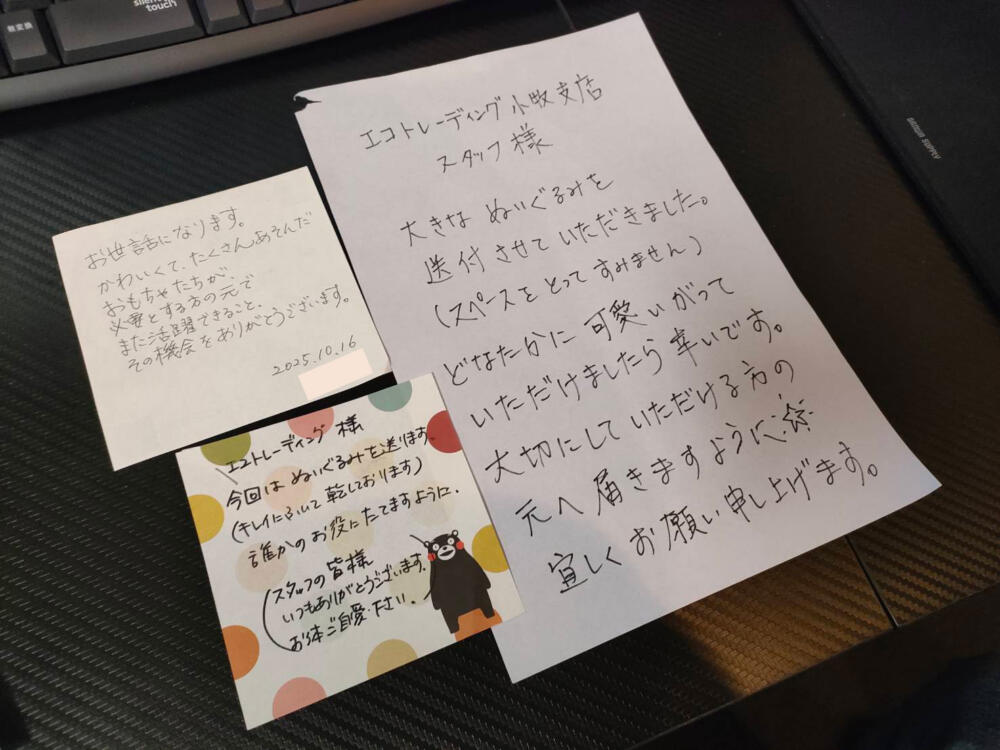 無変換
silent
touch
SANWA SUPPLY
エコトレーディング小牧支店
スタッフ様
大きな ぬいぐるみを
送付させていただきました。
(スペースを とって すみません)
どなたかに 可愛いがって
いただけましたら 幸いです。
大切にして いただける 方の
元へ 届きますように☆
宜しく お願い 申し上げます。
お世話になります。
かわいくて、たくさんあそんだ
おもちゃたちが、
必要とする方の元で
また活躍できること、
その機会をありがとうございます。
2025.10.16
エコトレーディング 様
今回は ぬいぐるみを送ります。
(キレイにふいて 乾しております)
誰かの お役にたてますように.
(スタッフの 皆様
いつもありがとうございます。
お体ご自愛ください.)